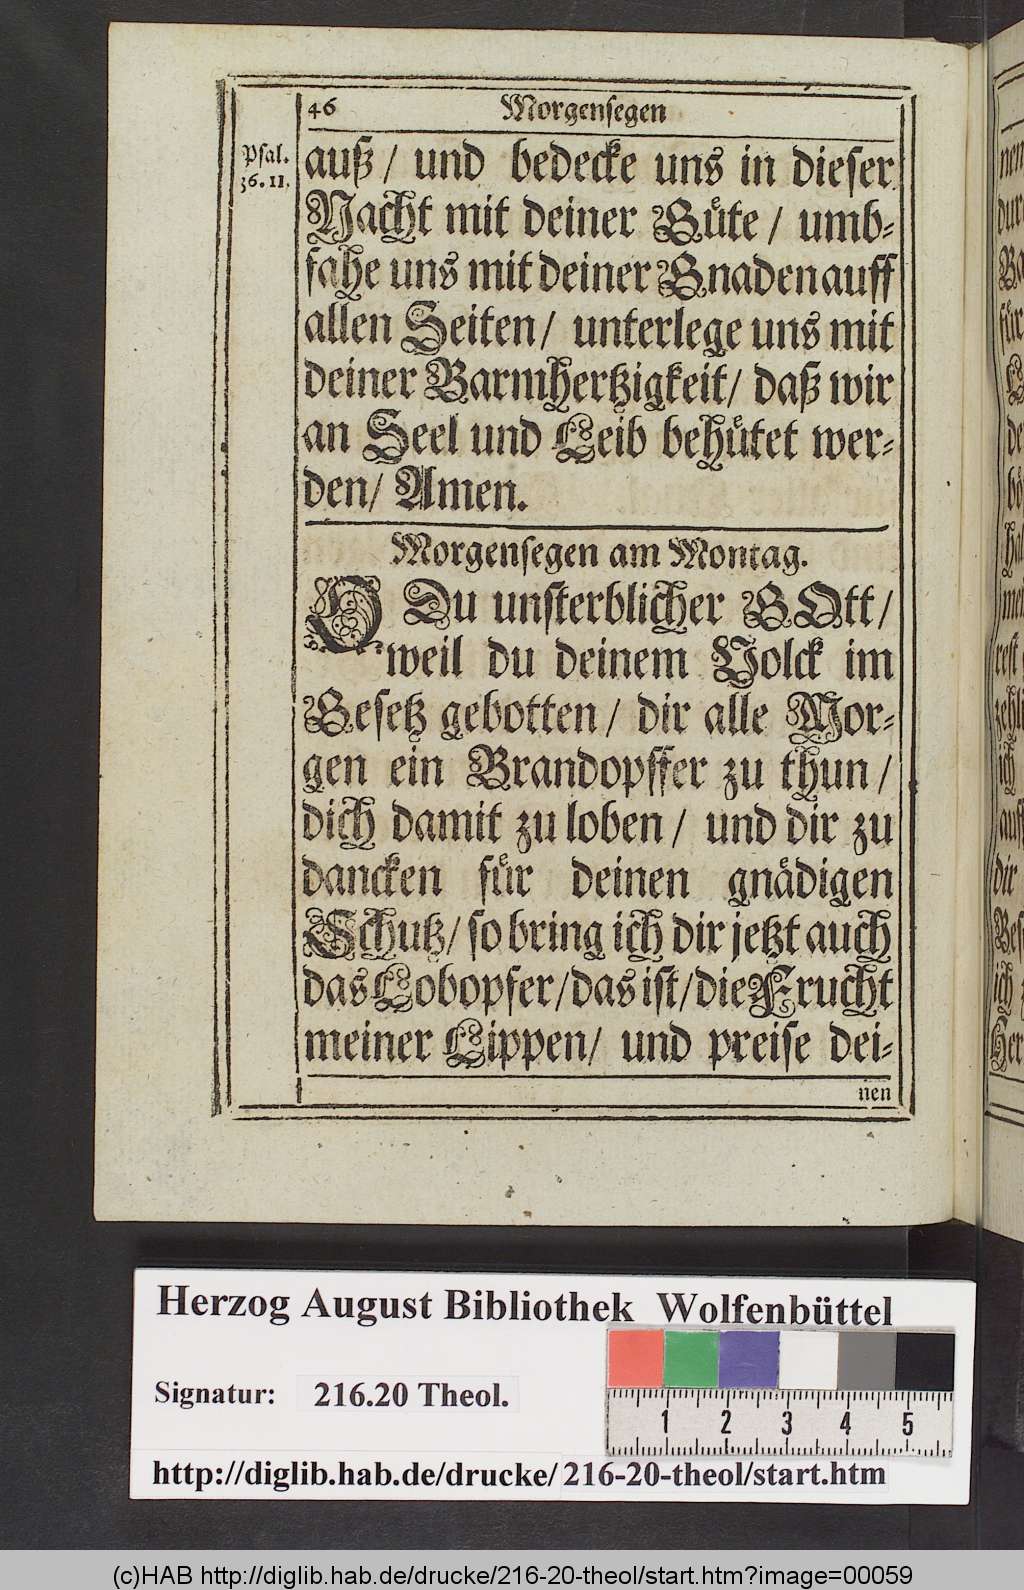 46
Morgensegen
Psal.
36.11.
auß / und bedecke uns in dieser
Nacht mit deiner Güte / umb-
fahe uns mit deiner Gnaden auff
allen Seiten / unterlege uns mit
deiner Barmhertzigkeit / daß wir
an Seel und Leib behütet wer-
den / Amen.
Morgensegen am Montag.
O Du unsterblicher GOtt /
weil du deinem Volck im
Gesetz gebotten / dir alle Mor-
gen ein Brandopffer zu thun /
dich damit zu loben / und dir zu
dancken für deinen gnädigen
Schutz / so bring ich dir jetzt auch
das Lobopfer / das ist / die Frucht
meiner Lippen / und preise dei-
nen
Herzog August Bibliothek Wolfenbüttel
Signatur: 216.20 Theol.
1 2 3 4 5
http://diglib.hab.de/drucke/216-20-theol/start.htm
(c)HAB http://diglib.hab.de/drucke/216-20-theol/start.htm?image=00059